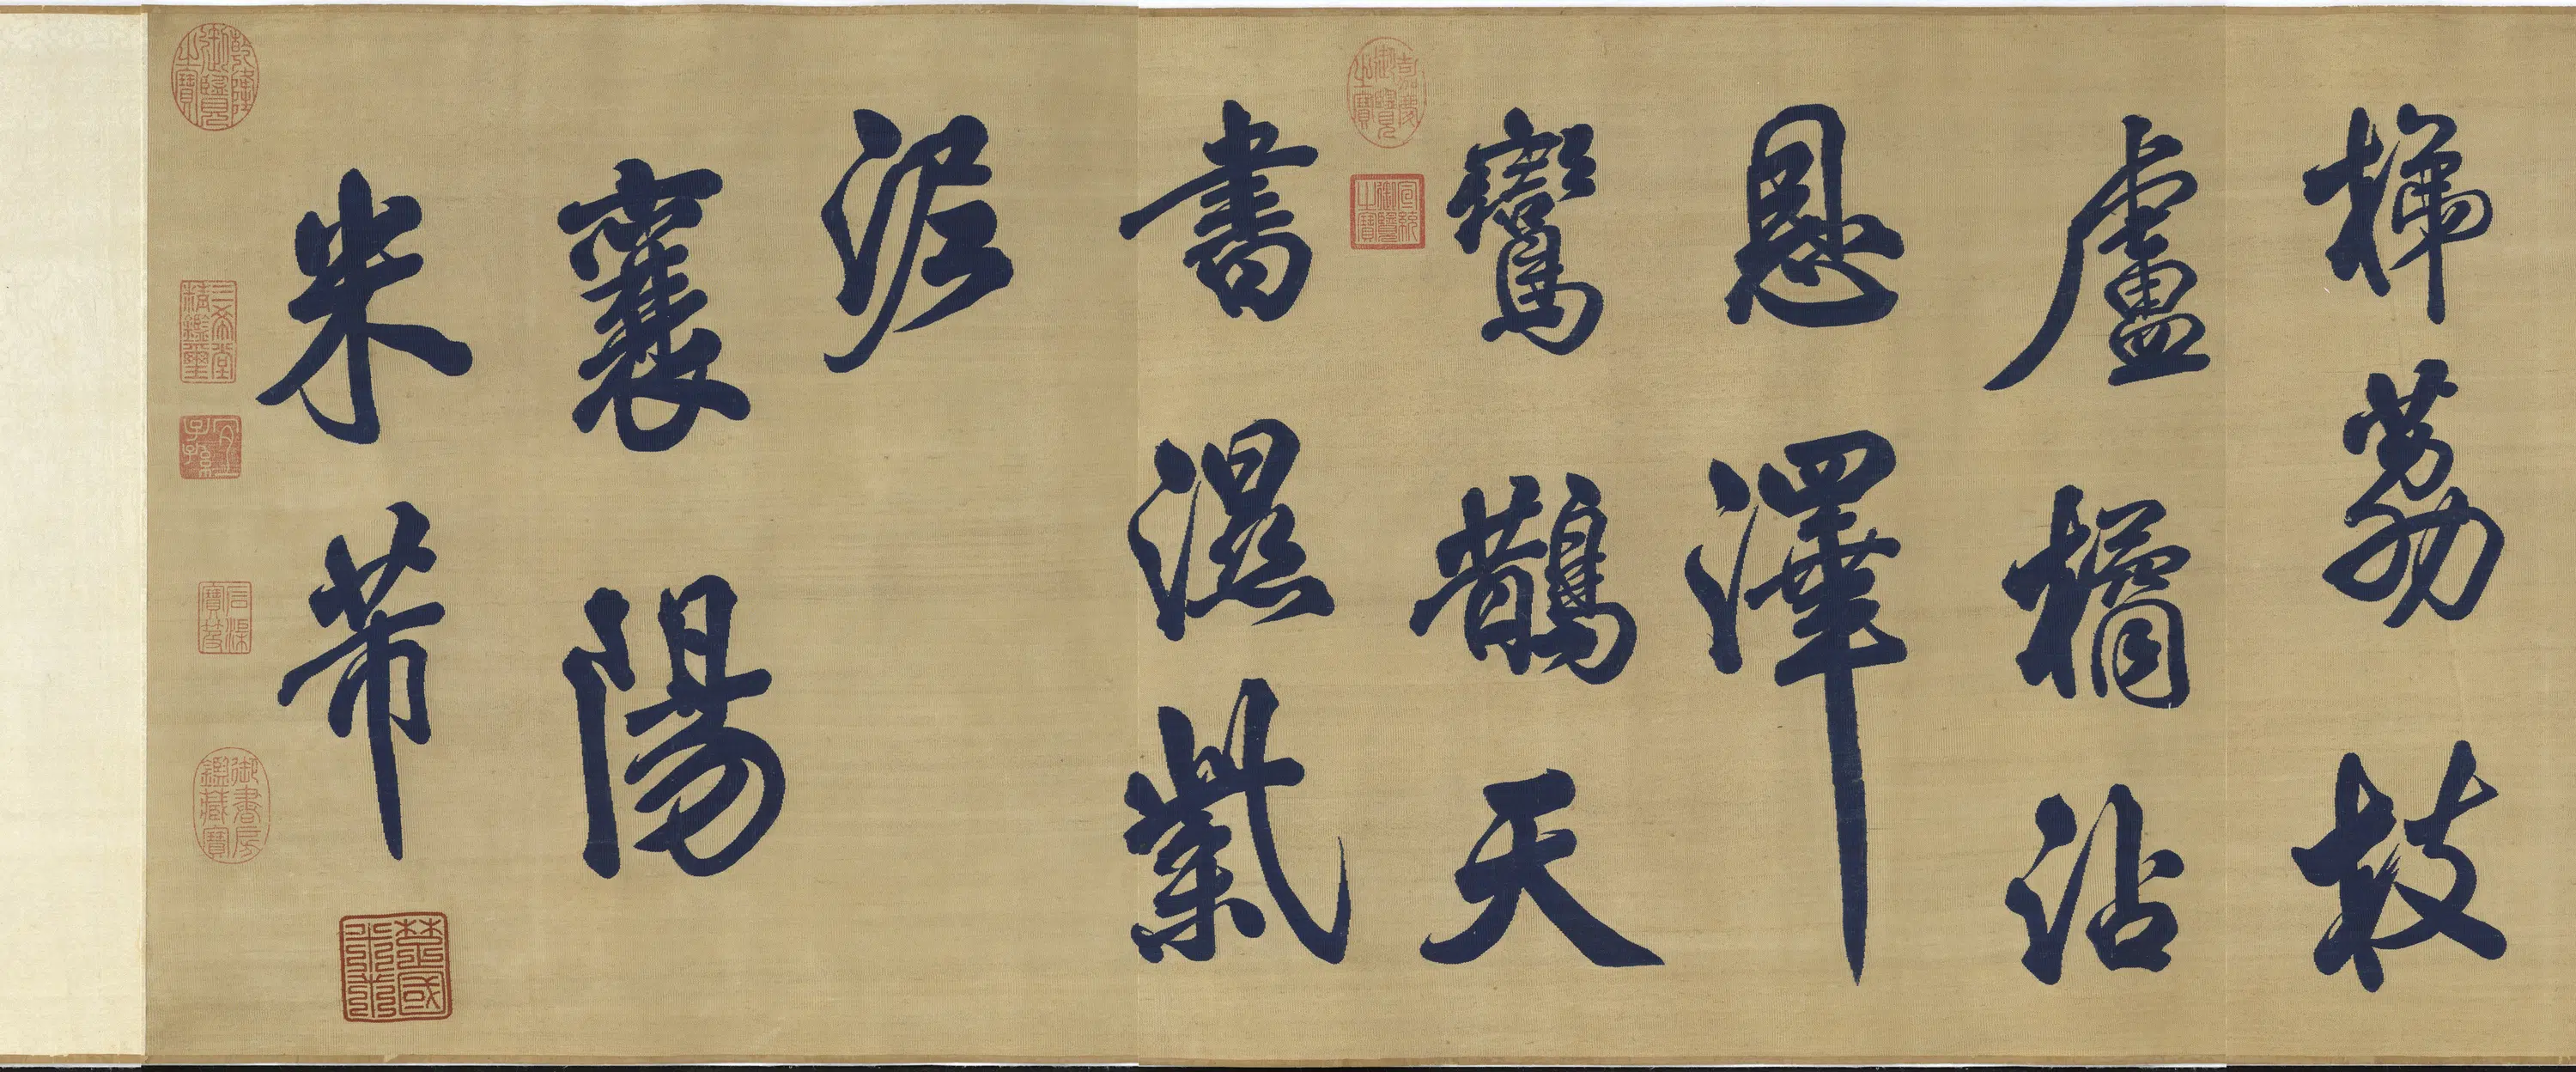 梯荔枝
盧橘沾
恩澤
鸞鵲天
書濕紫
泥
襄陽
米芾
嘉慶御覽之寶
宣統御覽之寶
楚國米芾
乾隆御覽之寶
三希堂精鑑璽
宜子孫
石渠寶笈
御書房鑑藏寶